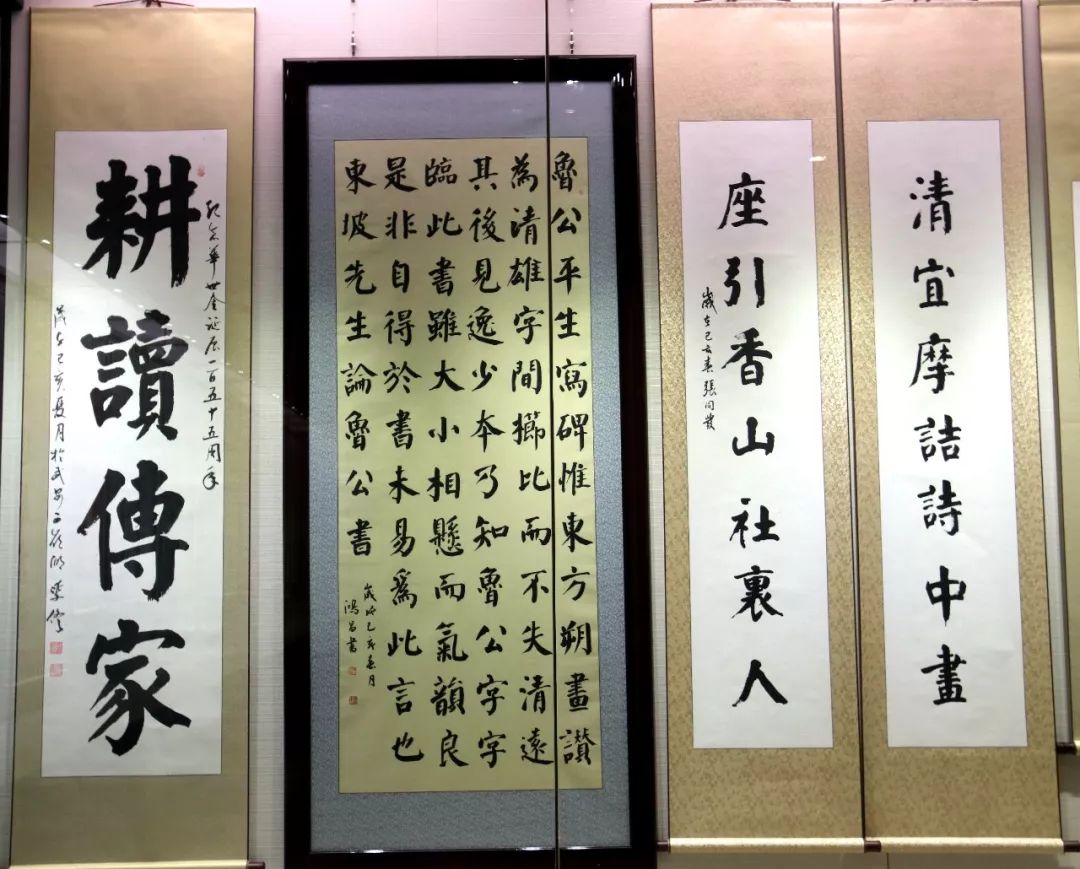 清宜摩詰詩中畫
座引香山社裏人
歲在己亥春張同發
魯公平生寫碑惟東方朔畫讚
為清雄字間櫛比而不失清遠
其後見逸少本乃知魯公字字
臨此書雖大小相懸而氣韻良
是非自得於書未易爲此言也
東坡先生論魯公書
歲次己亥春月
鴻昌書
紀念華世奎誕辰一百五十五周年
耕讀傳家
歲在己亥夏月於